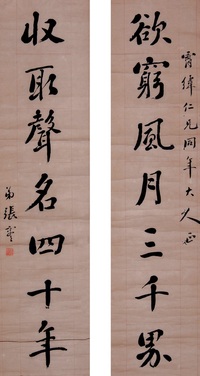 霄緯仁兄同年大人正
欲窮風月三千界
收取聲名四十年
弟張謇